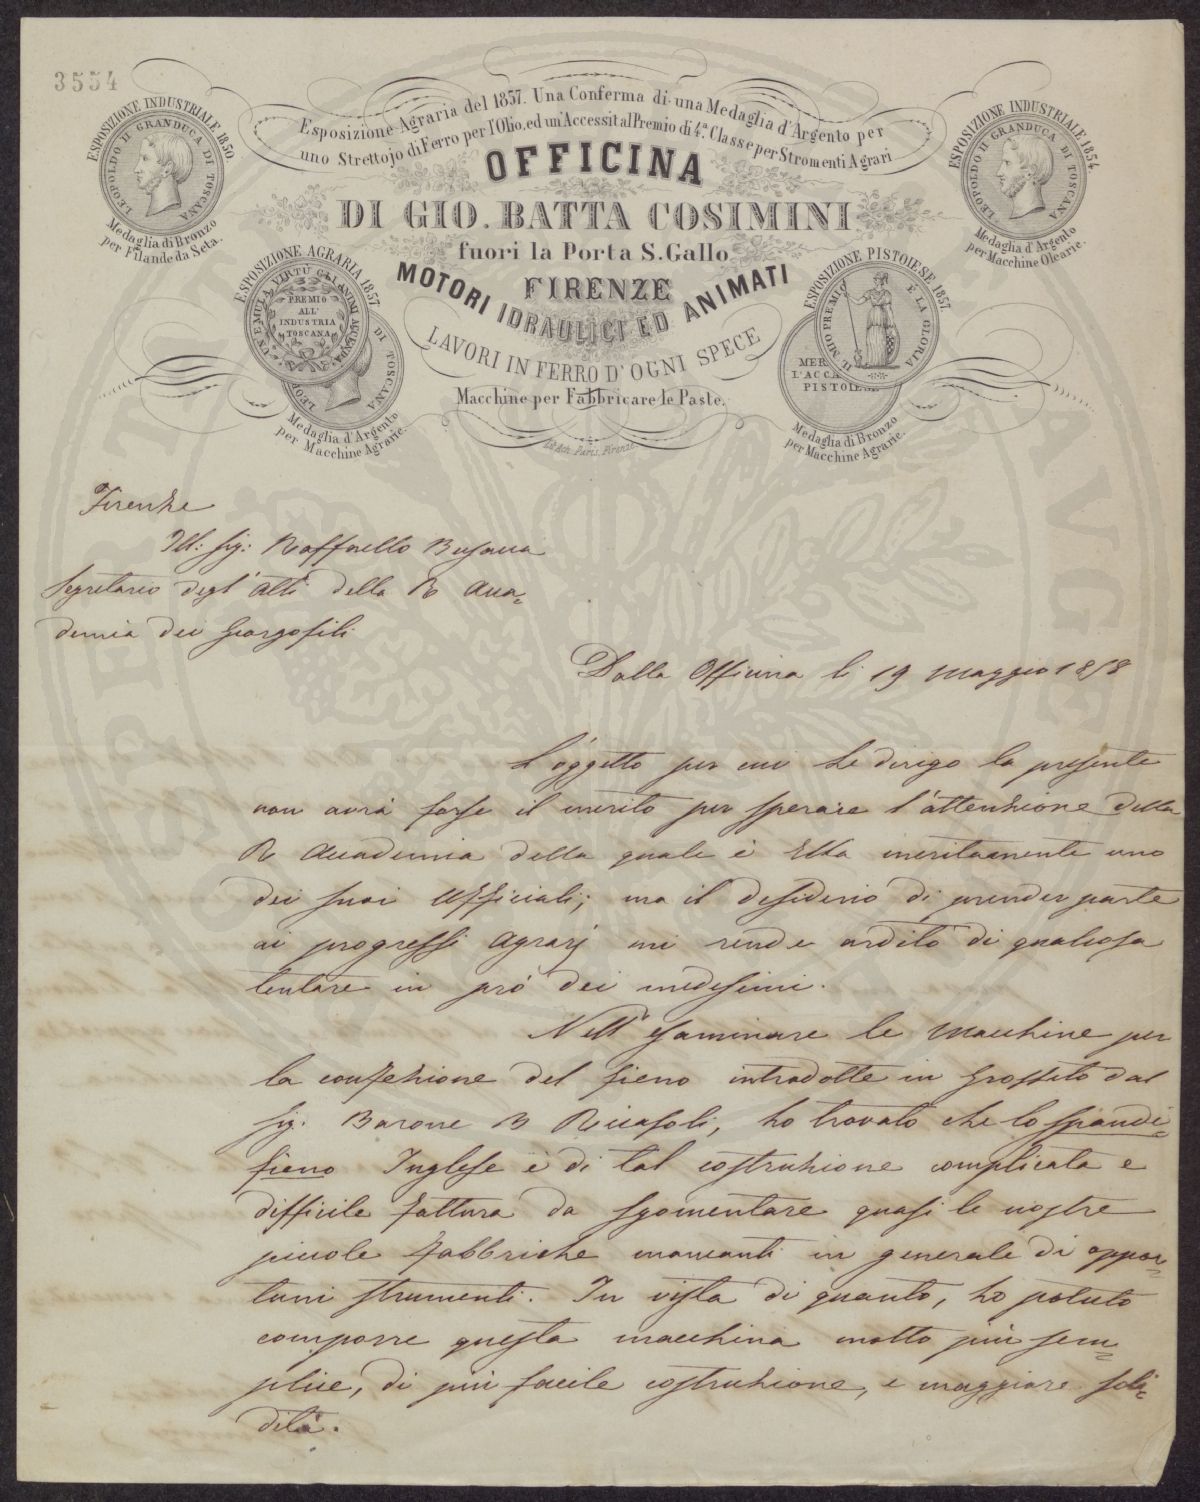 3554
Esposizione Agraria del 1857. Una Conferma di una Medaglia d'Argento per
uno Strettojo di Ferro per l'Olio, ed un'Accessit al Premio di 4.a Classe per Stromenti Agrari
ESPOSIZIONE INDUSTRIALE 1850.
LEOPOLDO II GRANDUCA DI TOSCANA
Medaglia di Bronzo
per Filande da Seta.
OFFICINA
DI GIO. BATTA COSIMINI
fuori la Porta S. Gallo
FIRENZE
MOTORI IDRAULICI ED ANIMATI
LAVORI IN FERRO D'OGNI SPECE
Macchine per Fabbricare le Paste.
ESPOSIZIONE INDUSTRIALE 1854.
LEOPOLDO II GRANDUCA DI TOSCANA
Medaglia d'Argento
per Macchine Olearie.
ESPOSIZIONE AGRARIA 1857
PREMIO
ALL'
INDUSTRIA
TOSCANA
LEOP DI TOSCANA
Medaglia d'Argento
per Macchine Agrarie.
ESPOSIZIONE PISTOIESE 1857.
IL MIO PREMIO È LA GLORIA
MER
L'ACCA
PISTOIESE
Medaglia di Bronzo
per Macchine Agrarie.
Paris. Firenze
Firenze
Ill: Sig: Raffaello Busacca
Segretario degl'Atti della R Acca=
demia dei Georgofili
Dalla Officina li 19 Maggio 1858
L'oggetto per cui Le dirigo la presente
non avrà forse il merito per sperare l'attenzione della
R Accademia della quale è Ella meritamente uno
dei suoi Ufficiali; ma il desiderio di prender parte
ai progressi Agrarj mi rende ardito di qualcosa
tentare in prò dei medesimi.
Nell'esaminare le Macchine per
la confezione del fieno introdotte in Grosseto dal
Sig. Barone B Ricasoli, ho trovato che lo spandi=
fieno Inglese è di tal costruzione complicata e
difficile fattura da sgomentare quasi le nostre
piccole Fabbriche mancanti in generale di oppor=
tuni strumenti. In vista di quanto, ho potuto
comporre questa macchina molto più sem=
plice, di più facile costruzione, e maggiore soli=
dità.